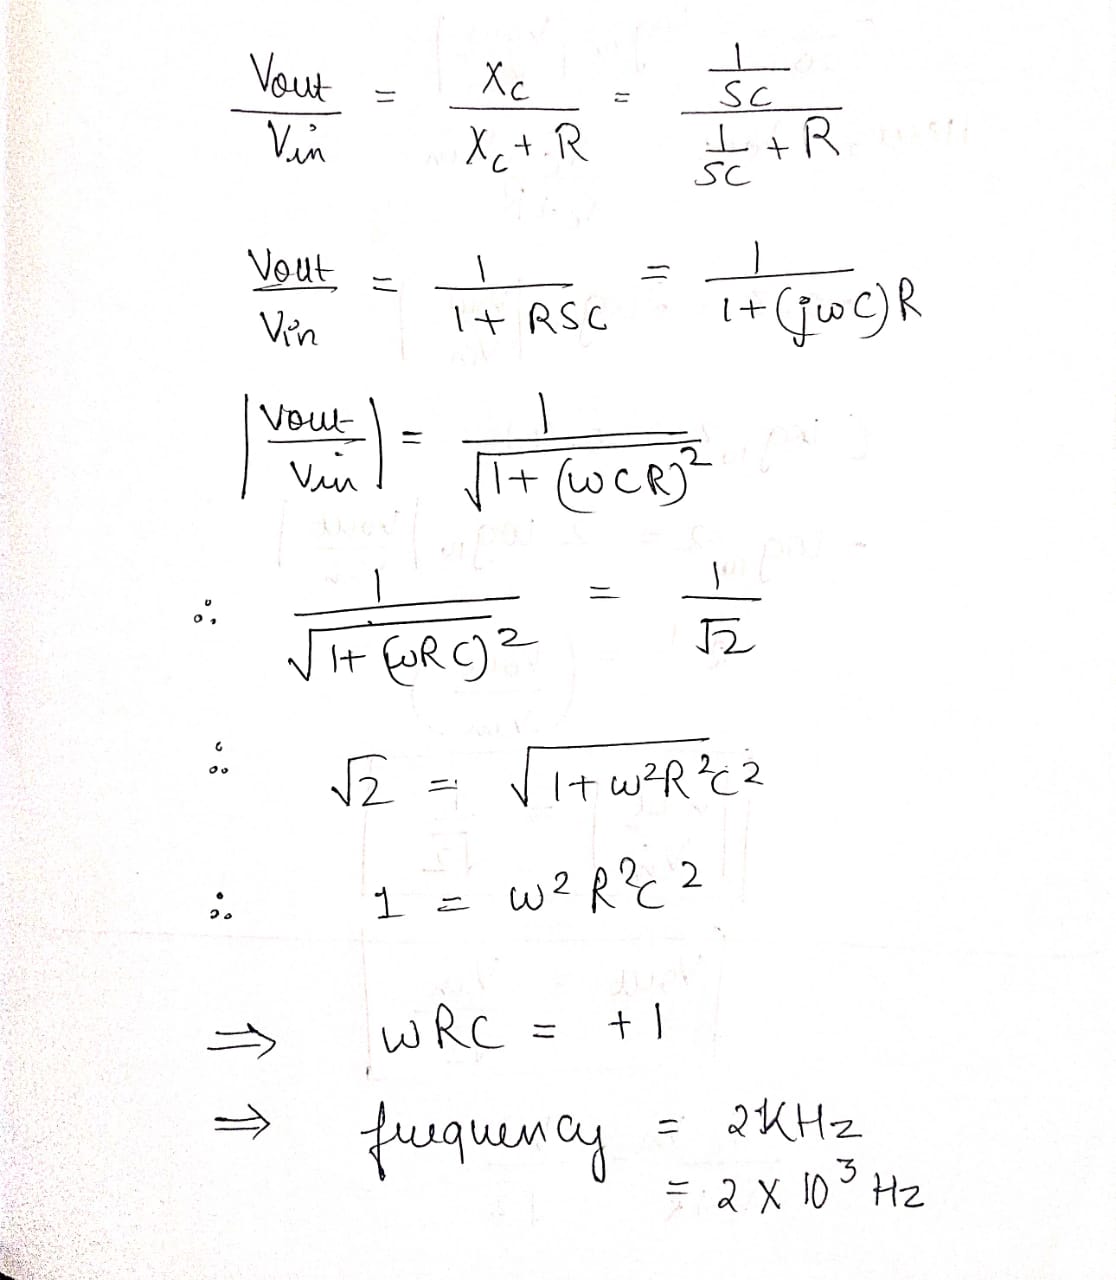 Vout/Vin = Xc/(Xc + R) = (1/SC)/(1/SC + R)
Vout/Vin = 1/(1 + RSC) = 1/(1 + (jωC)R)
|Vout/Vin| = 1/√(1 + (ωCR)²)
∴ 1/√(1 + (ωRC)²) = 1/√2
∴ √2 = √(1 + ω²R²C²)
∴ 1 = ω²R²C²
⇒ ωRC = +1
⇒ frequency = 2KHz
= 2 X 10³ Hz